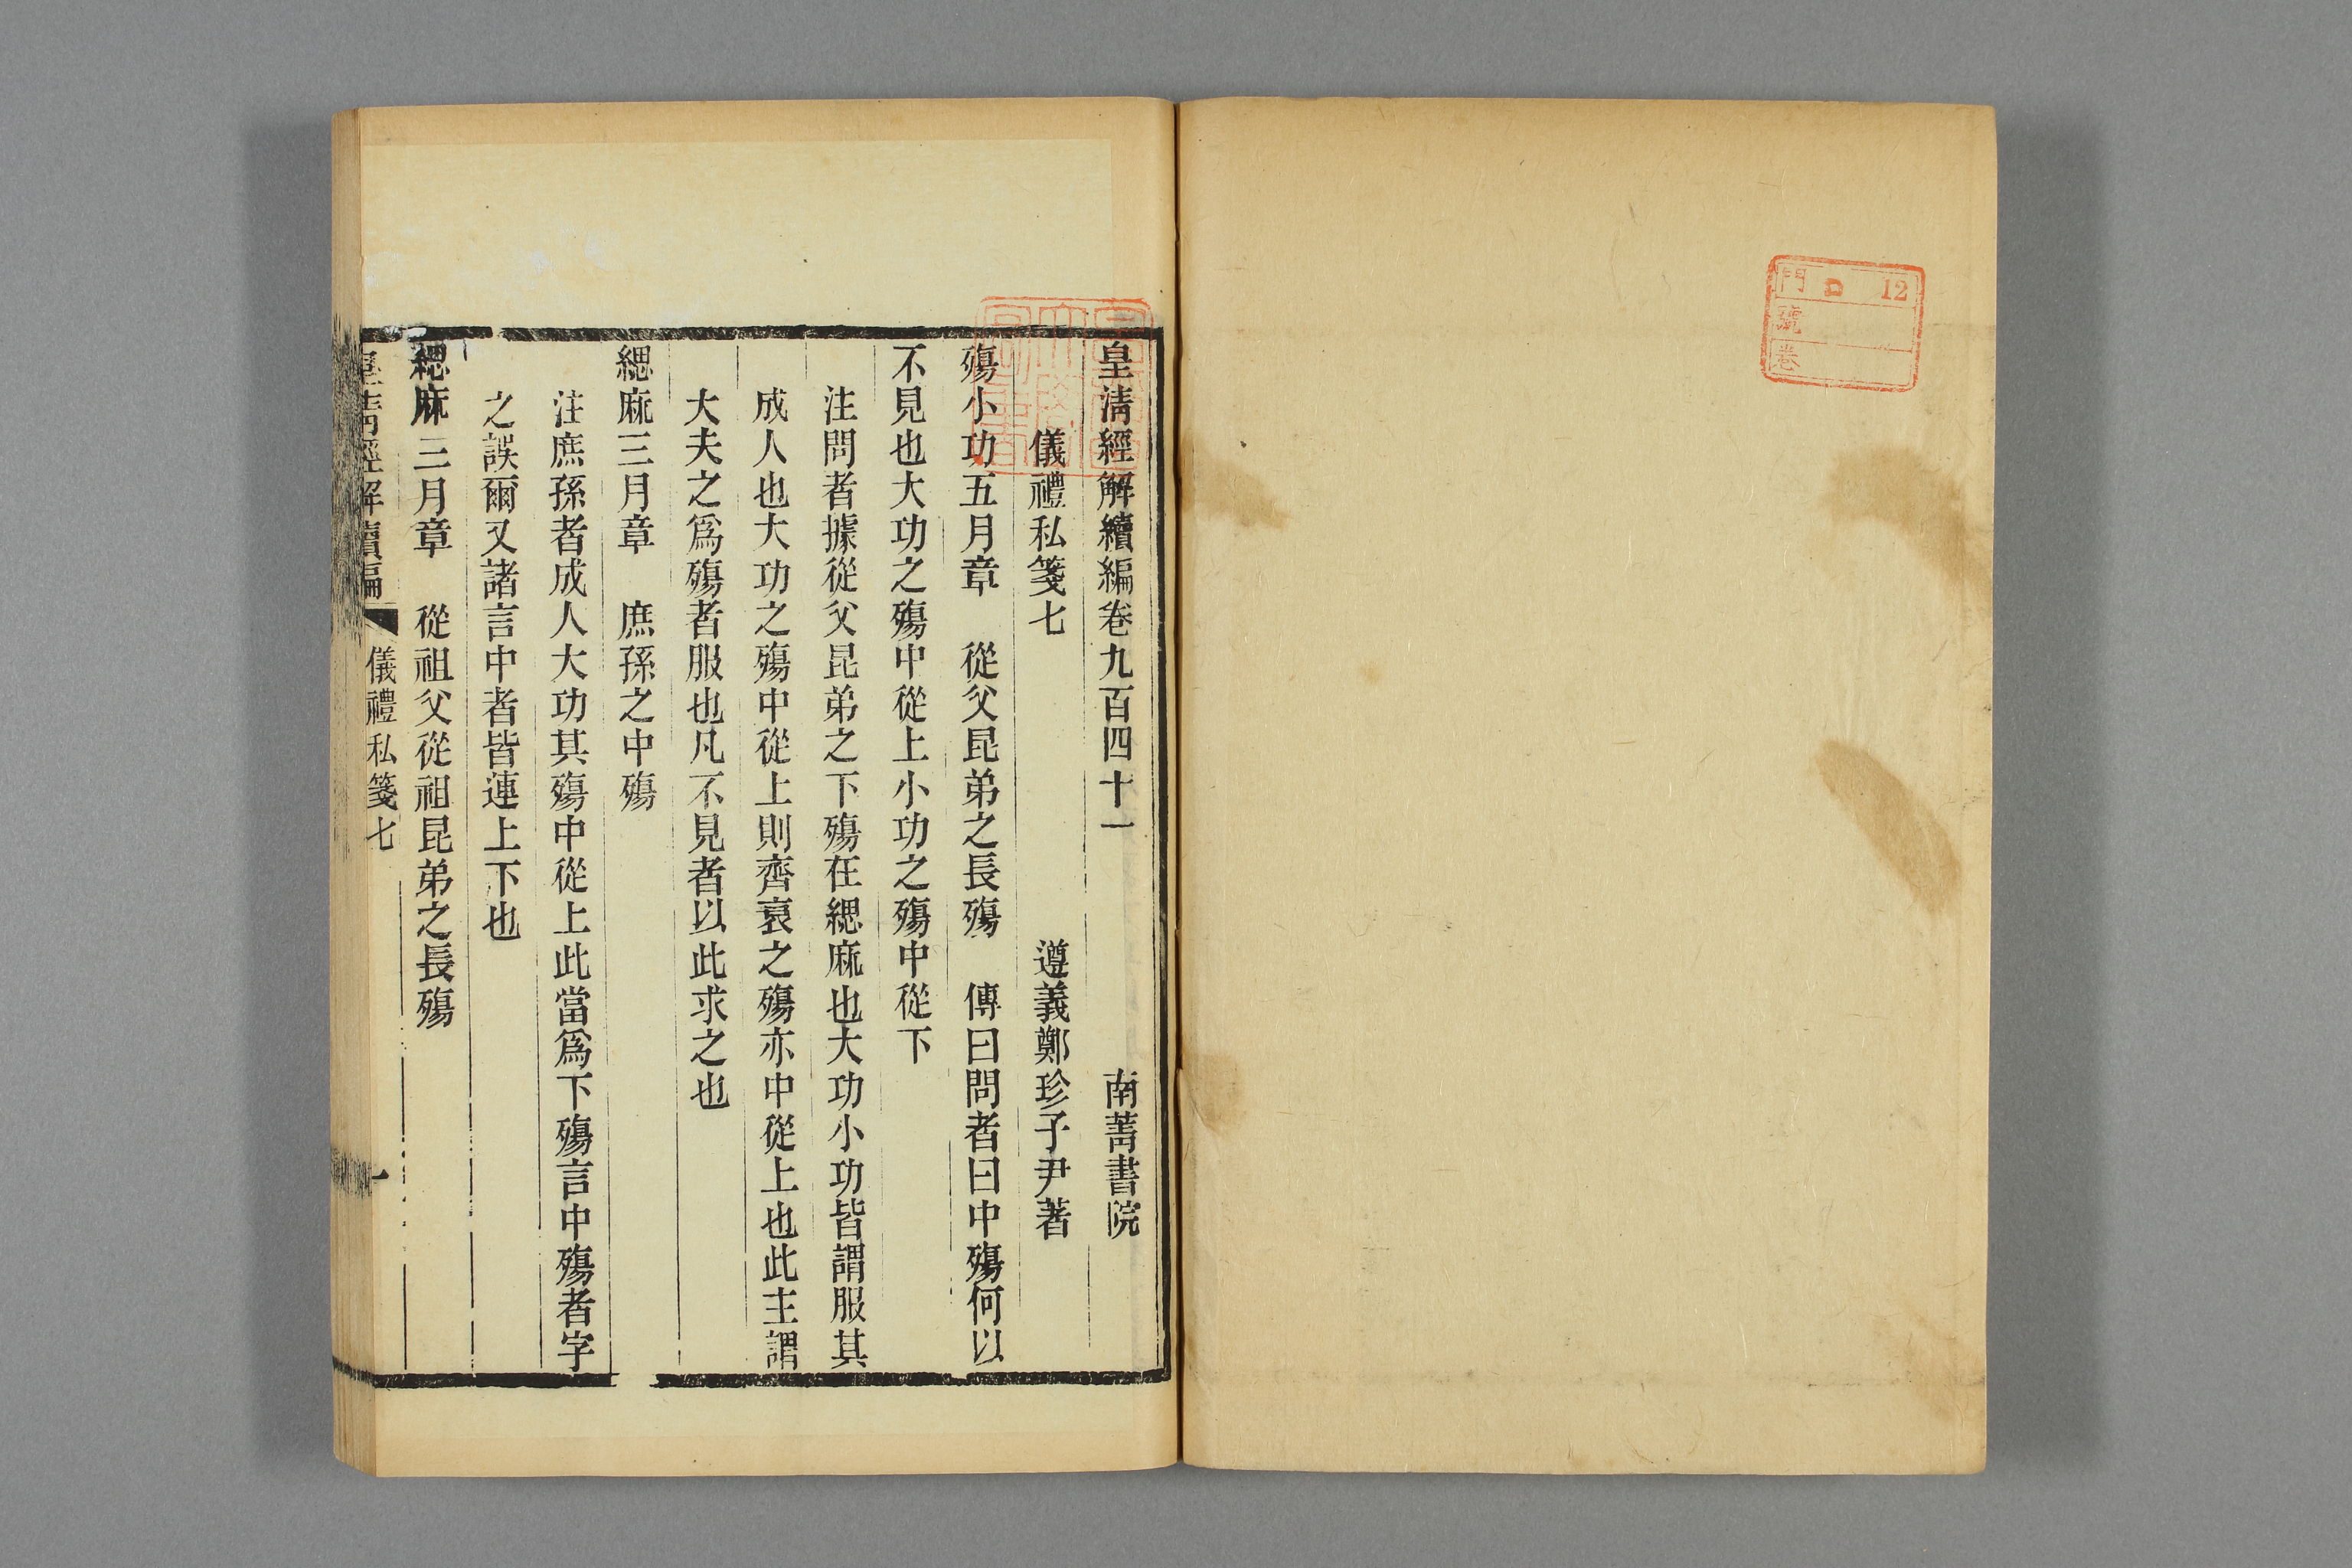 門 12
號
卷
皇清經解續編卷九百四十一 南菁書院
儀禮私箋七 遵義鄭珍子尹著
殤小功五月章 從父昆弟之長殤 傳曰問者曰中殤何以
不見也大功之殤中從上小功之殤中從下
注問者據從父昆弟之下殤在緦麻也大功小功皆謂服其
成人也大功之殤中從上則齊衰之殤亦中從上也此主謂
大夫之爲殤者服也凡不見者以此求之也
緦麻三月章 庶孫之中殤
注庶孫者成人大功其殤中從上此當爲下殤言中殤者字
之誤爾又諸言中者皆連上下也
緦麻三月章 從祖父從祖昆弟之長殤
皇清經解續編 儀禮私箋七 一